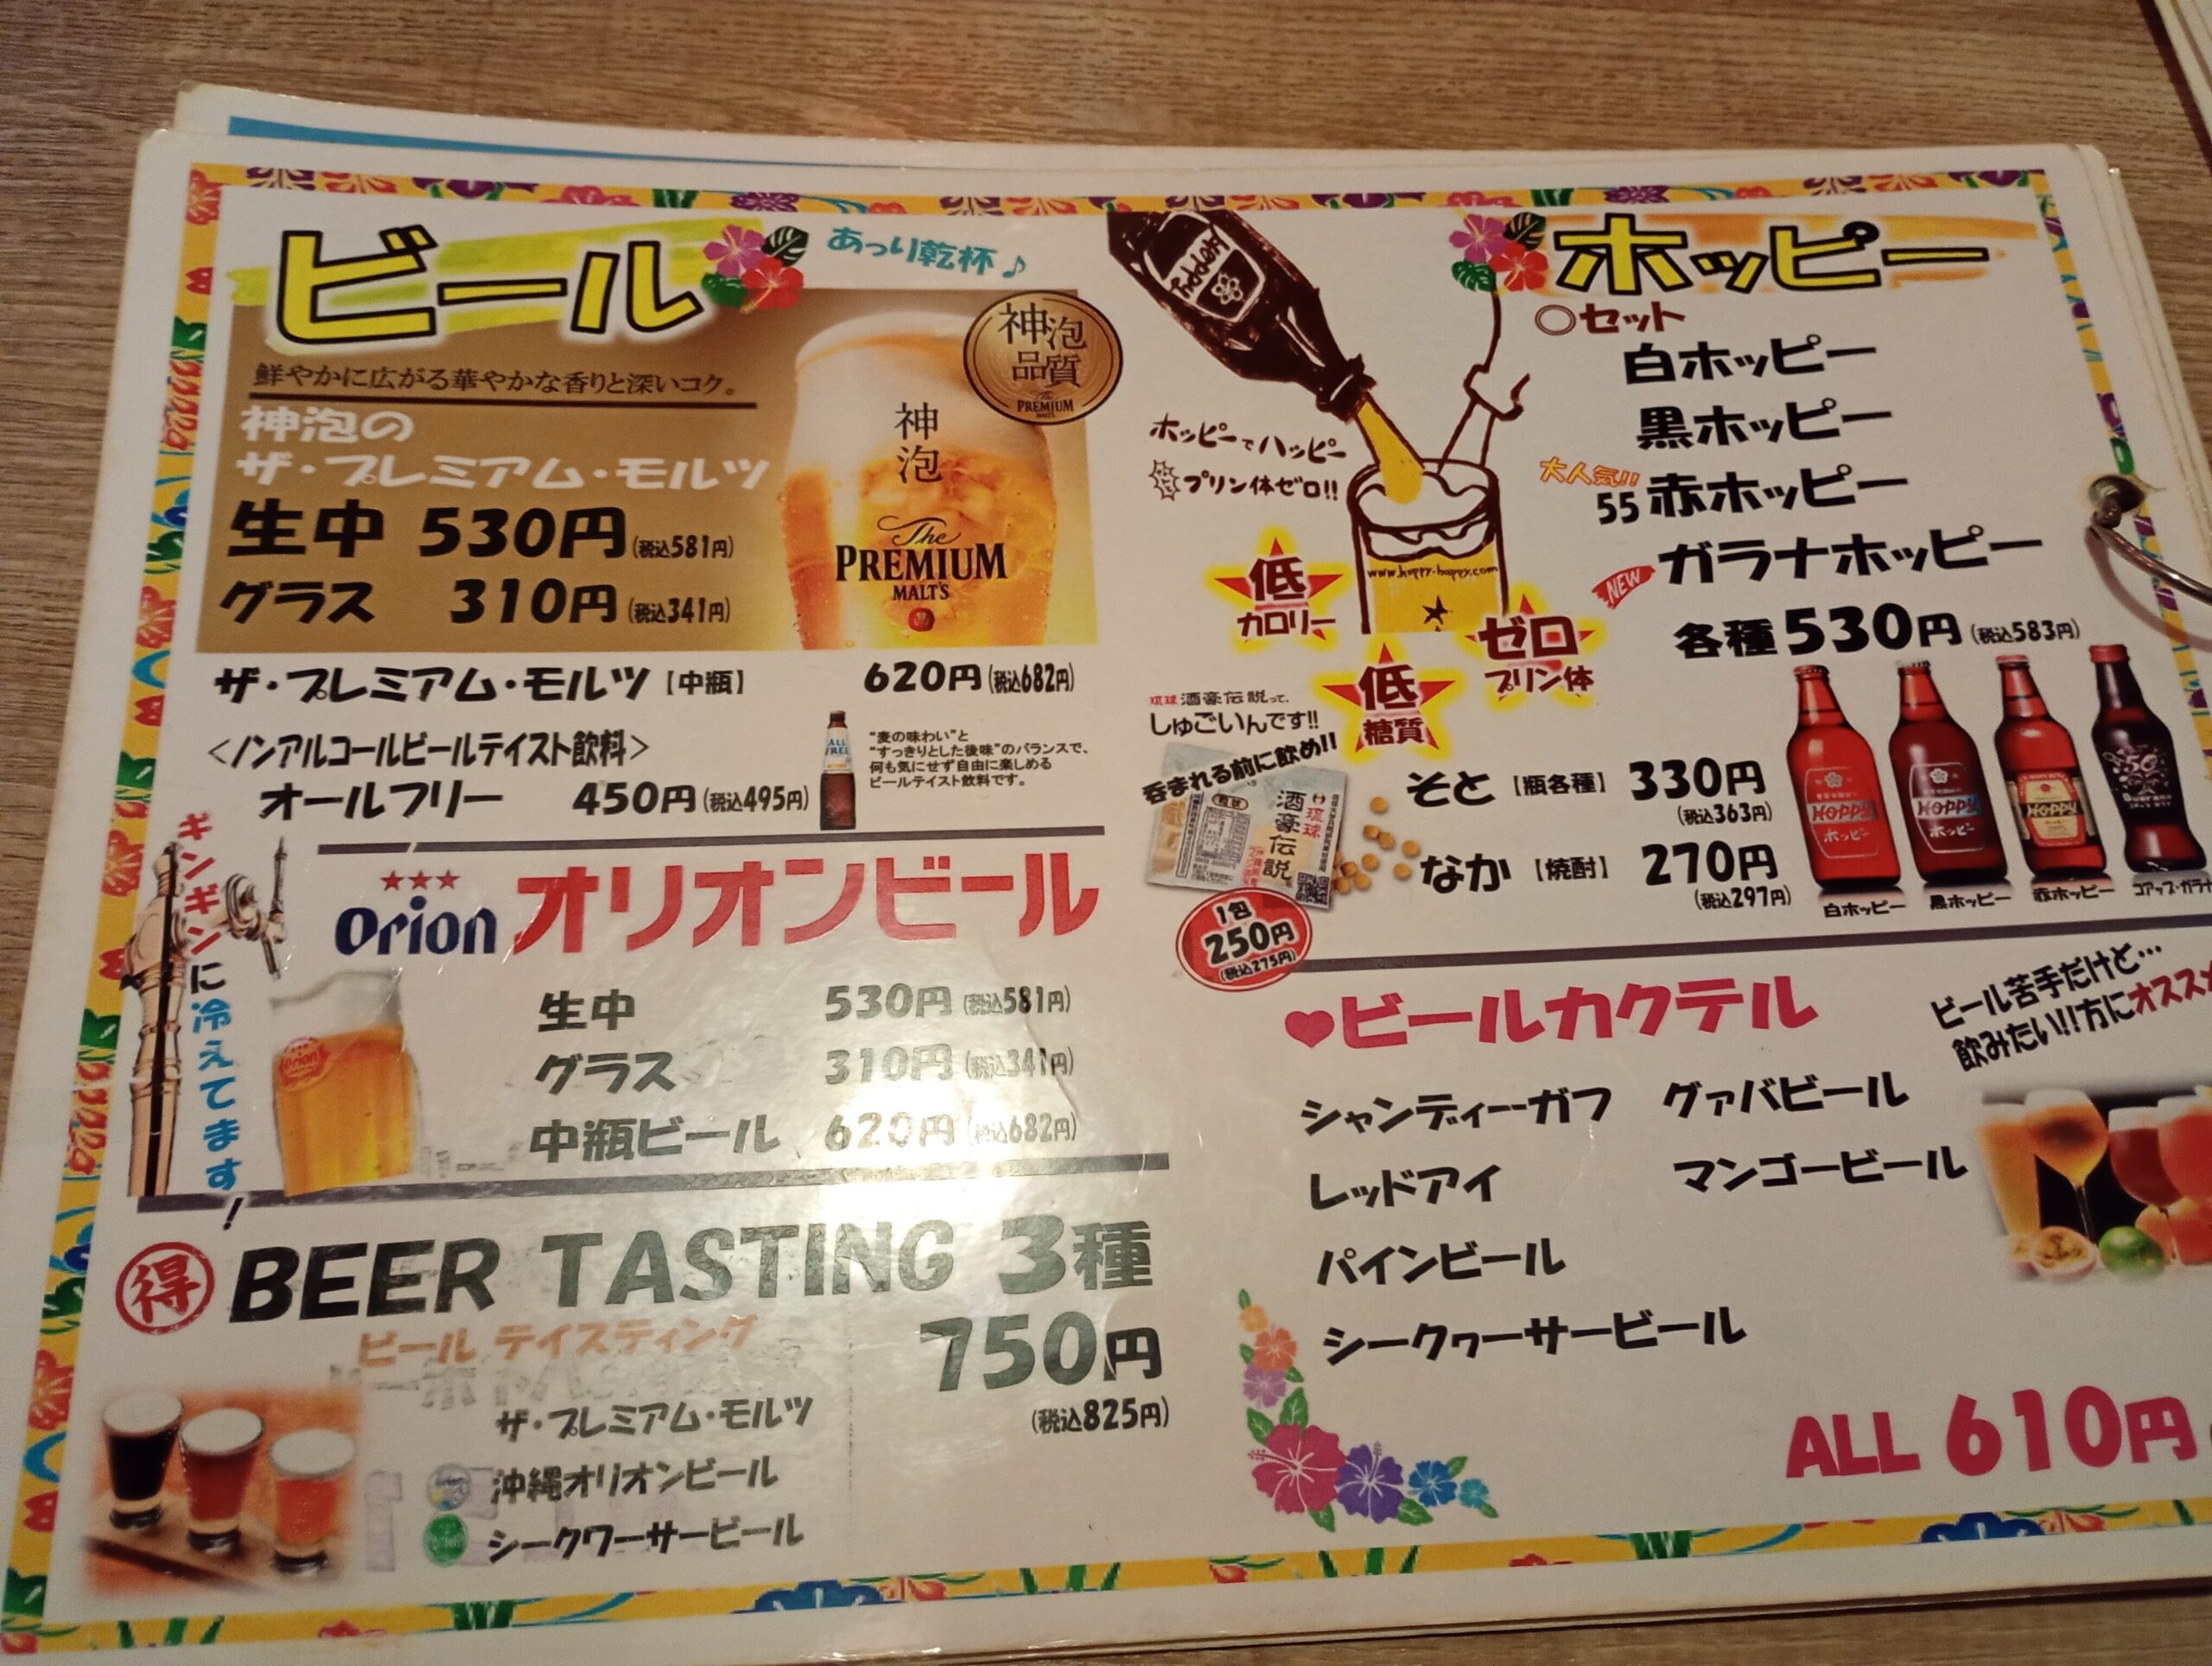 ビール
あっり乾杯♪
鮮やかに広がる華やかな香りと深いコク。
神泡の
ザ・プレミアム・モルツ
生中 530円(税込581円)
グラス 310円(税込341円)
神泡
品質
The
PREMIUM
MALT'S
神
泡
The
PREMIUM
MALT'S
ザ・プレミアム・モルツ【中瓶】 620円(税込682円)
<ノンアルコールビールテイスト飲料>
オールフリー 450円(税込495円)
ALL
FREE
"麦の味わい"と
"すっきりとした後味"のバランスで、
何も気にせず自由に楽しめる
ビールテイスト飲料です。
ギンギンに冷えてます!
Orion オリオンビール
生中 530円(税込581円)
グラス 310円(税込341円)
中瓶ビール 620円(税込682円)
得 BEER TASTING 3種
ビール テイスティング
750円
(税込825円)
ザ・プレミアム・モルツ
沖縄オリオンビール
シークワーサービール
ホッピー
○セット
白ホッピー
黒ホッピー
大人気!!
55 赤ホッピー
NEW
ガラナホッピー
各種530円(税込583円)
Hoppy
ホッピーでハッピー
プリン体ゼロ!!
www.hoppy-happy.com
低
カロリー
低
糖質
ゼロ
プリン体
琉球 酒豪伝説って、
しゅごいんです!!
呑まれる前に飲め!!
琉球
酒豪伝説
1包
250円
(税込275円)
そと【瓶各種】 330円
(税込363円)
なか【焼酎】 270円
(税込297円)
HOPPY
ホッピー
HOPPY
ホッピー
HOPPY
白ホッピー
黒ホッピー
赤ホッピー
コアップ・ガラナ
♥ビールカクテル
ビール苦手だけど…
飲みたい!!方にオススメ
シャンディーガフ グァバビール
レッドアイ マンゴービール
パインビール
シークヮーサービール
ALL 610円